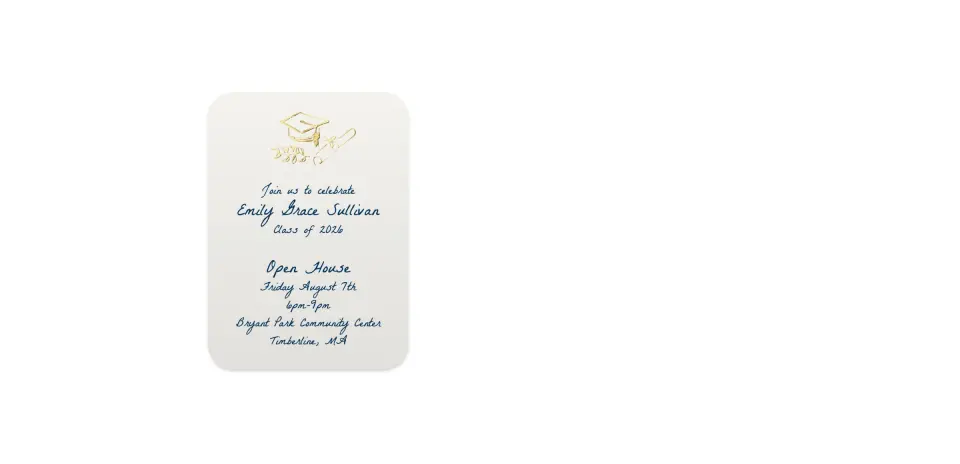 Join us to celebrate
Emily Grace Sullivan
Class of 2026
Open House
Friday August 7th
6pm-9pm
Bryant Park Community Center
Timberline, MA